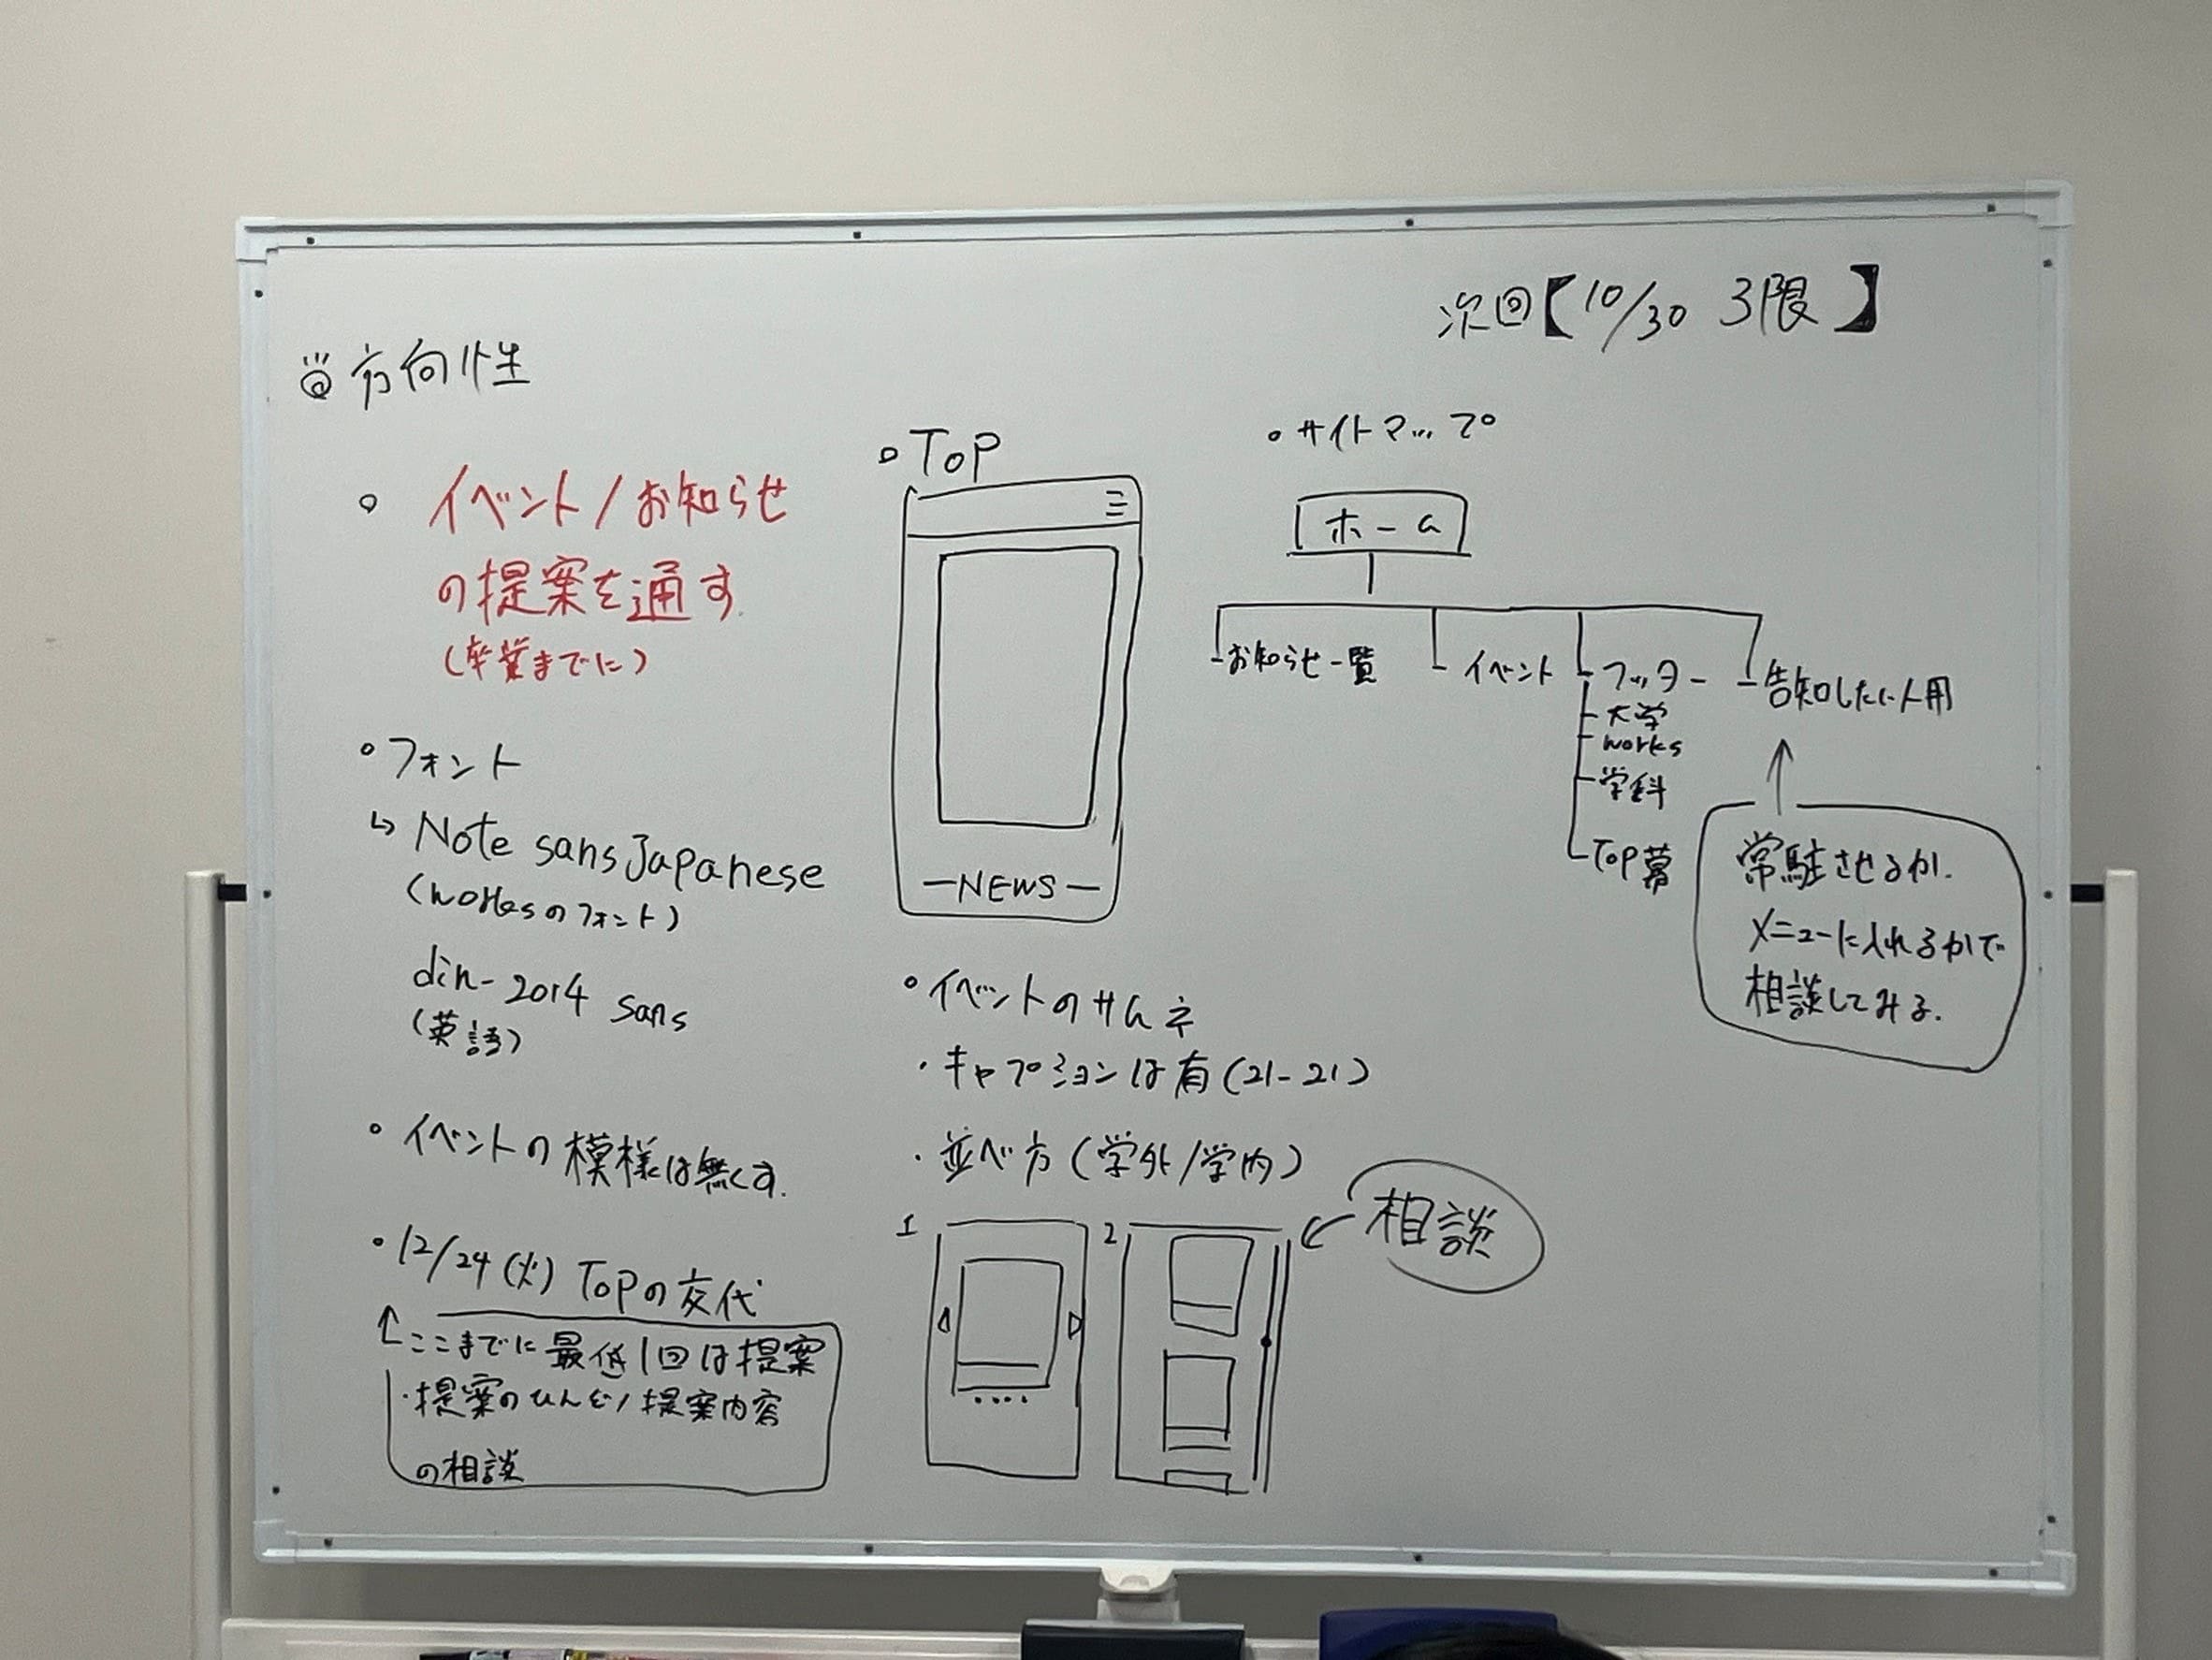 次回【10/30 3限】
方向性
イベント/お知らせ
の提案を通す
(卒業までに)
フォント
↳ Note sans Japanese
(worksのフォント)
din-2014 sans
(英語)
イベントの模様は無くす.
12/24(火) TOPの交代
↑ここまでに最低1回は提案
・提案のひんど/提案内容
の相談
TOP
NEWS
イベントのサムネ
・キャプションは有(21-21)
・並べ方(学外/学内)
1
2
相談
サイトマップ
ホーム
お知らせ一覧
イベント
フッター
大学
works
学科
TOP幕
告知したい人用
常駐させるか.
メニューに入れるかで
相談してみる.